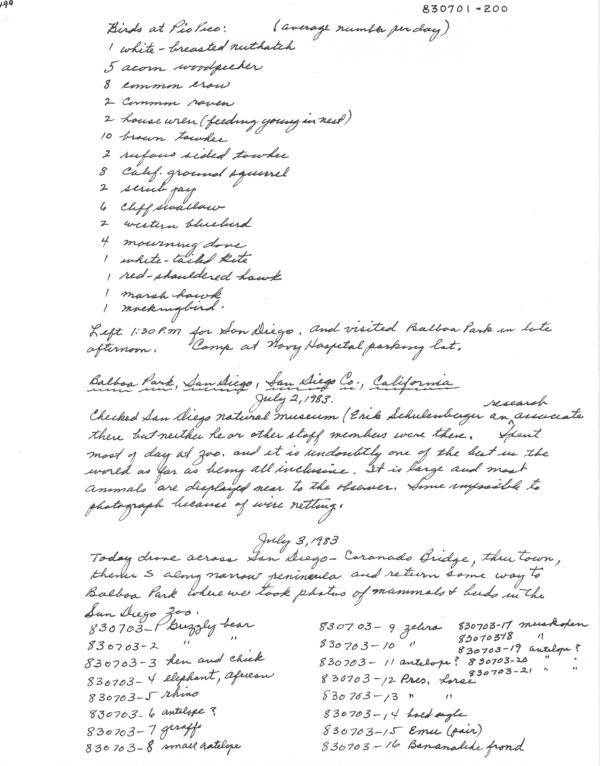 199
830701-200
Birds at Pio Pico: (average number per day)
1 white-breasted nuthatch
5 acorn woodpecker
8 common crow
2 Common raven
2 house wren (feeding young in nest)
10 brown towhee
2 rufous sided towhee
8 Calif. ground squirrel
2 scrub jay
6 Cliff swallow
2 western bluebird
4 mourning dove
1 white-tailed kite
1 red-shouldered hawk
1 marsh hawk
1 mockingbird.
Left 1:30 P.M for San Diego. and visited Balboa Park in late
afternoon. Camp at Navy Hospital parking lot.
Balboa Park, San Diego, San Diego Co., California
July 2, 1983.
Checked San Diego natural museum (Erik Schulenburger an research associate
there but neither he or other staff members were there. Spent
most of day at zoo. and it is undoubtly one of the best in the
world as far as being all inclusive. It is large and most
animals are displayed near to the observer. Some impossible to
photograph because of wire netting.
July 3, 1983
Today drove across San Diego-Coronado Bridge, thru town,
thence S along narrow peninsula and return same way to
Balboa Park where we took photos of mammals & birds in the
San Diego Zoo.
830703-1 Grizzly bear
830703-2 " "
830703-3 hen and chick
830703-4 elephant, African
830703-5 rhino
830703-6 antelope?
830703-7 giraffe
830703-8 small antelope
830703-9 zebra
830703-10 "
830703-11 antelope?
830703-12 Pres. horse
830703-13 " "
830703-14 bald eagle
830703-15 Emu (pair)
830703-16 Bananalike frond
830703-17 muskoxen
83070318 "
830703-19 antelope?
830703-20 " "
830703-21 " "